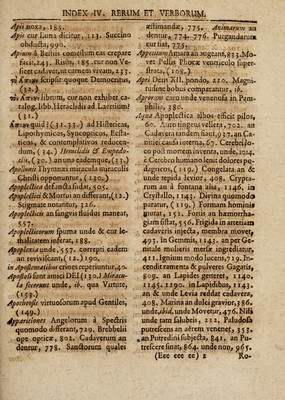 INDEX IV. RERUM ET VERBORUM.
Apis noxa, 185.
Apis cur Luna dictur, 113. Succino
obducta, 990.
Aprum à Bestiis concilium cur crepare
fecit, 243. Risin, 185. cur non Ve-
ficet cadaver, ut carnem vivam, 233.
scripsit quoque Democritus,
(32.)
librum, cur non exhibet ca-
talog. libb. Heraclidis ad Laertium?
(31.)
(32. 33.) ad Hystericas,
Lipothymicos, Syncopticos, Ecsta-
ticos, & contemplativos reducen-
dum, (34.) Hemidis & Empedo-
clis (30.) an una eademque, (33.)
Apollonii Thyanæi miraculis miraculis
Christi opponuntur, (130.)
Apoplectica defuncta sudat, 505.
Apoplectici & Mortui an differant, (12.)
Stigmate notantur, 526.
Apoplecticis an sangvis fluidus maneat,
557.
Apoplecticorum spuma unde & cur le-
thalitatem inferat, 188.
Apoplexia unde, 557. correpti eadem
an reviviscant, (12.) 190.
in Aposthematibus crines reperiuntur, 40.
Apostoli sunt amici DEI (130.) Miracu-
la fecerunt unde, ib. qua Virtute,
(159.)
Apotheosis virtuosorum apud Gentiles,
(149.)
Appariciones Angelorum à Spectris
quomodo differant, 729. Brebbelii
ope opticæ, 802. Cadaverum an
dentur, 778. Sanctorum quales
æstimandæ, 775. Animarum an
dentur, 774. 776. Purgandarum
cur fiat, 775.
Appetitum Amara an augeant, 983. Mo-
vet Pellis Phocæ ventriculo super-
strata, (108.)
Apri Dens XII. pondo, 210. Magni-
tudine bobus comparantur, ib.
Aprorum caro unde venenosa in Pam-
philia, 380.
Aqua Apoplectica albos efficit pilos,
60. Auro tingens vellera, 702. an
Cadavera tandem fiant, 937. an Ca-
nitici causa interna, 67. Cerebello-
co post mortem inventa, unde, 1024.
è Cerebro humano lenit dolores po-
dagricos, (119.) Congelata an &
unde tepida levior, 408. Crypta-
rum an à fontana alia, 1146. in
Crystallo, 1143. Divina quomodo
paratur, (119.) Formam hominis
mutat, 151. Fortis an hæmorrha-
giam sistat, 556. Frigida in arteriam
cadaveris injecta, membra movet,
493. in Gemmis, 1143. an per Ge-
nitale mulieris menstr ingrediatur,
411. Ignium modo lucens, 719. In-
cendit ramenta & pulveres Gagatis,
809. an Lapides gerneret, 1140.
1145. 1190. in Lapidibus, 1143.
an & unde Levia reddat cadavera,
408. Marina an dulci gravior, 386.
unde, ibid. unde Movetur, 476. Nili
unde tam salubris, 212. Paludosa
putrescens an aërem venenet, 353.
an Putredini subjecta, 841. an Pu-
trescere sinat, 864. unde non, 965.
(Eee eee ee) 2 Ro-